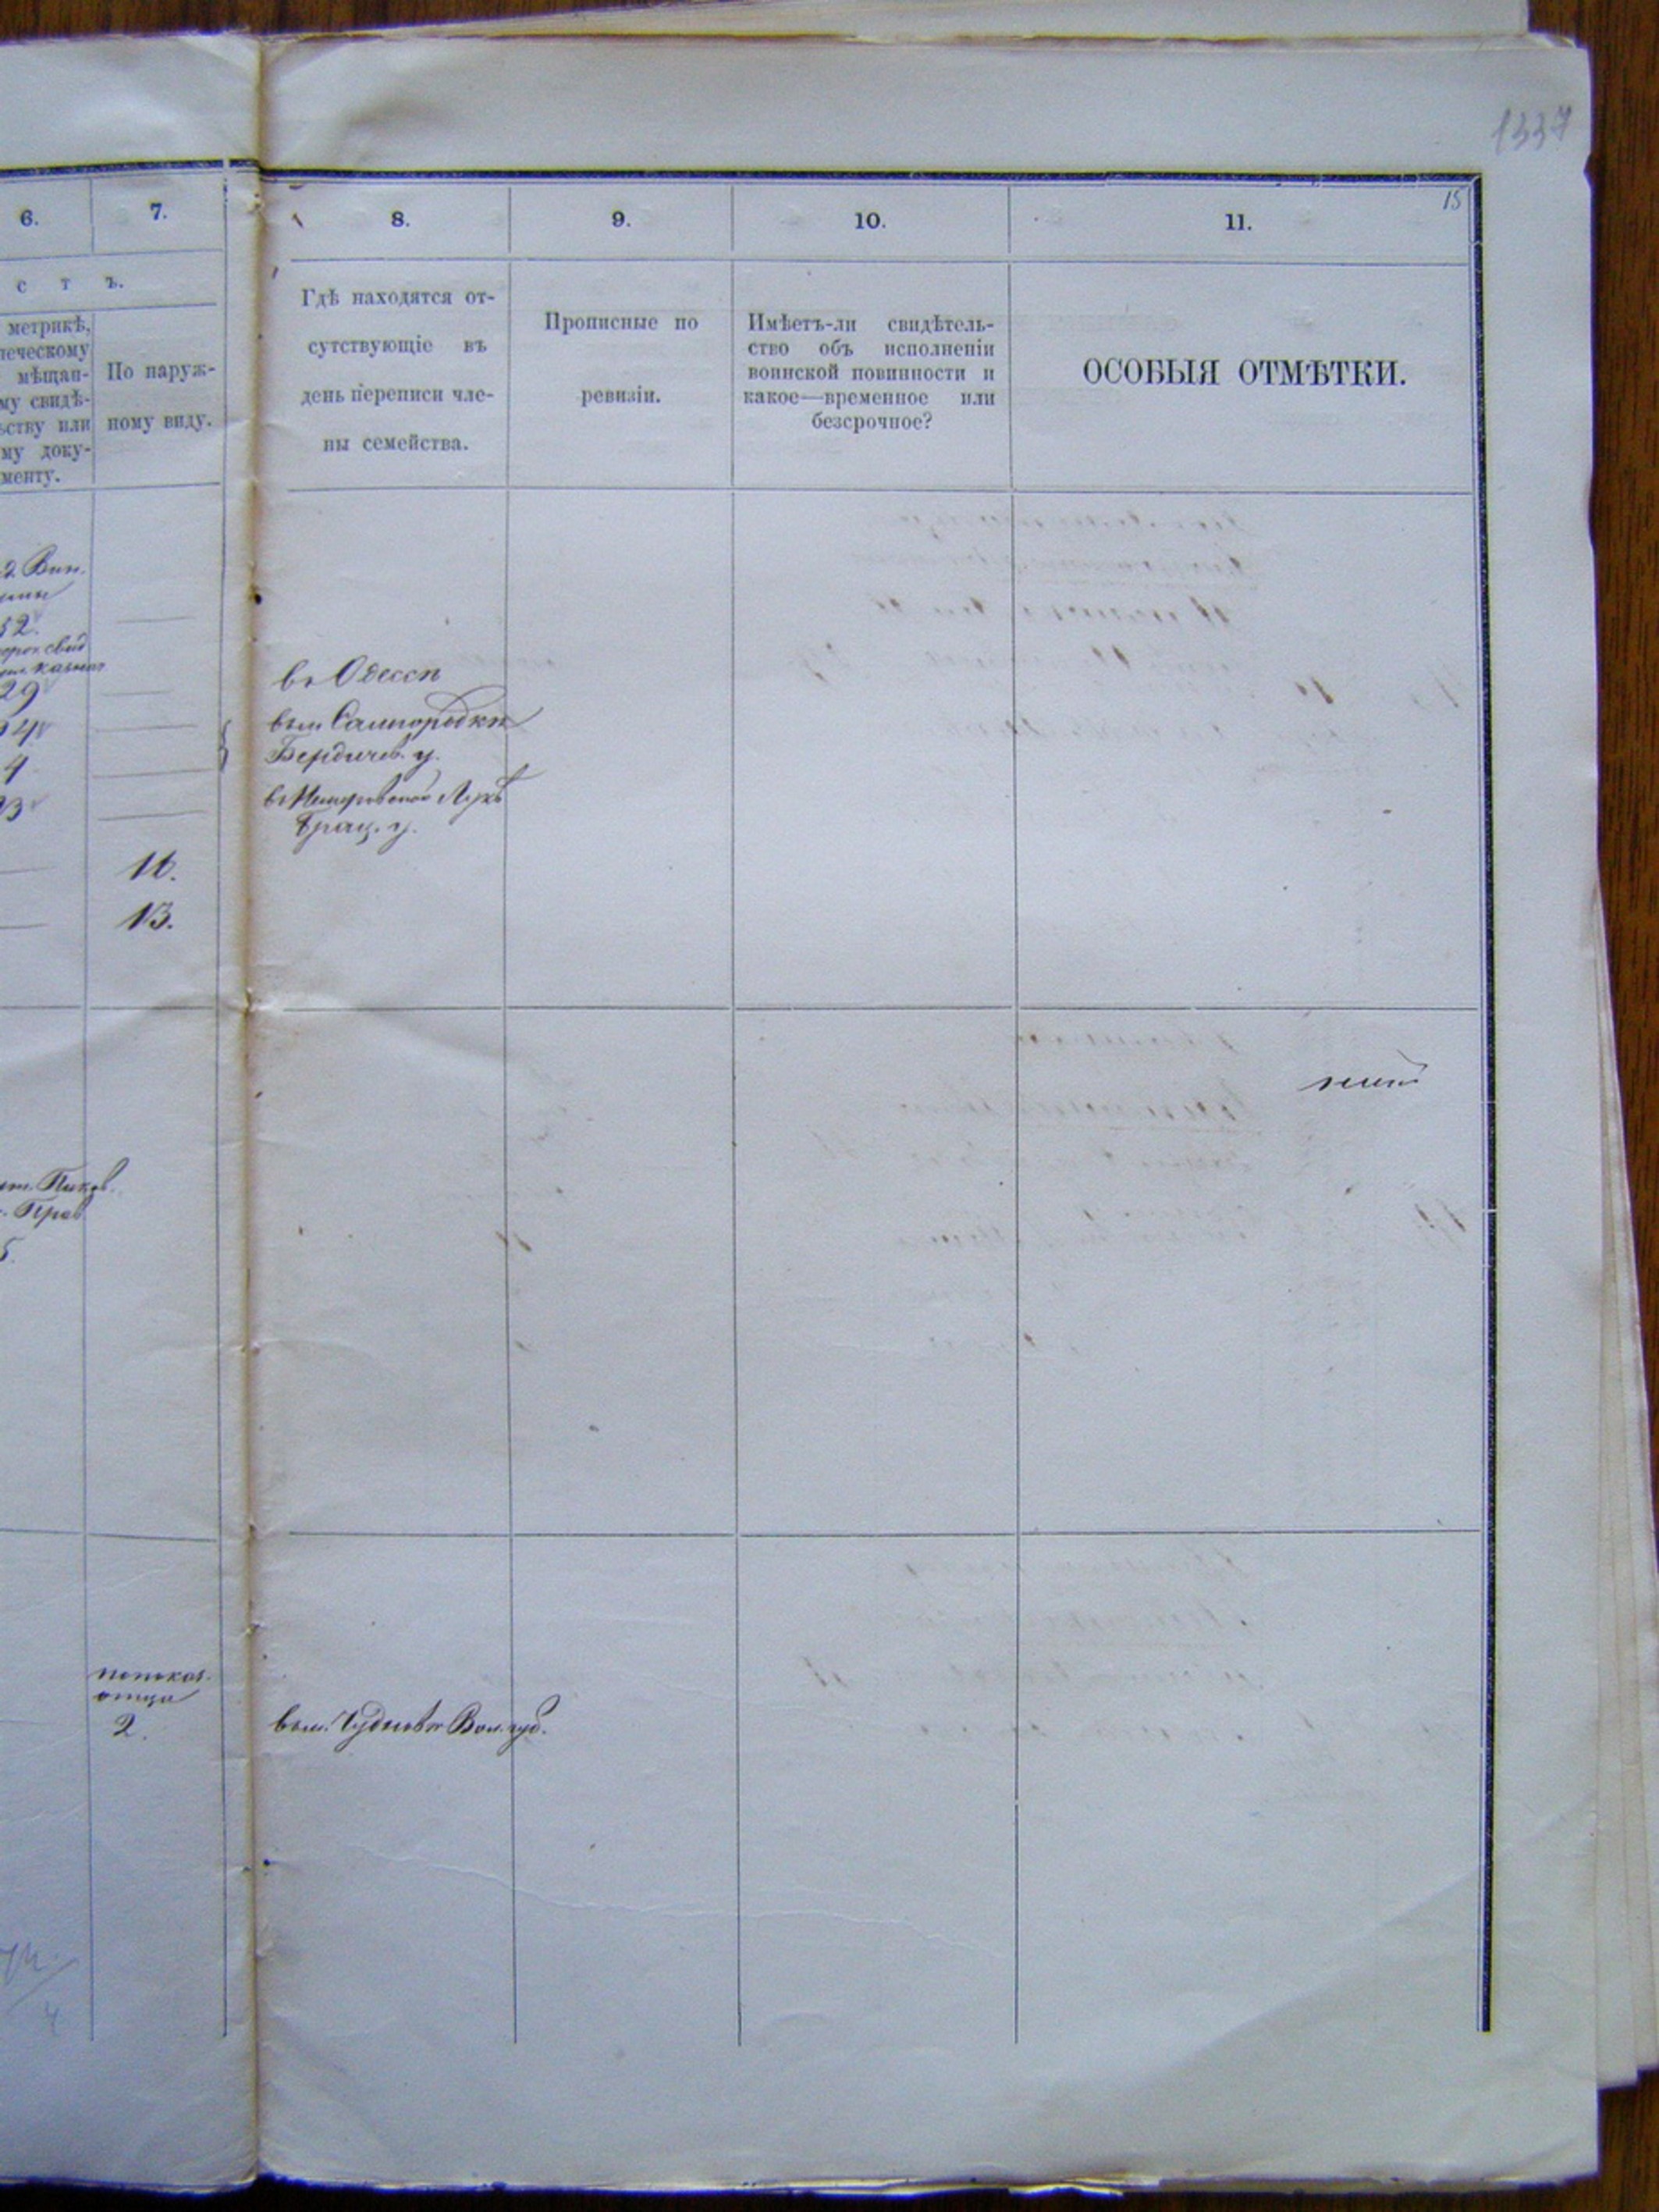 1337
15
6.
7.
8.
9.
10.
11.
с т ъ.
метрикѣ,
ическому
мѣщан-
му свидѣ-
ьству или
му доку-
менту.
По наруж-
ному виду.
Гдѣ находятся от-
сутствующіе въ
день переписи чле-
ны семейства.
Прописные по
ревизіи.
Имѣетъ-ли свидѣтель-
ство объ исполненіи
воинской повинности и
какое—временное или
безсрочное?
ОСОБЫЯ ОТМѢТКИ.
Вин.
52.
свид
казнач
29
в Одессѣ
4
въ м. Самгородкѣ
Бердичев. у.
в Немировской Лукѣ
Брац. у.
11.
13.
Пиков.
Прав.
5.
по показ.
отца
2.
въ м. Чудновѣ Вол. губ.
4